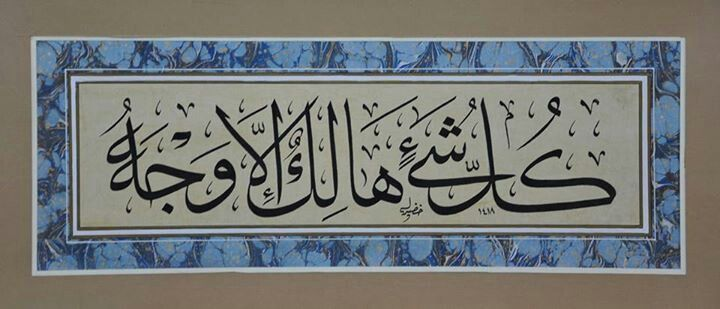 كُلُّ شَيْءٍ هَالِكٌ إِلَّا وَجْهَهُ
١٤١٨